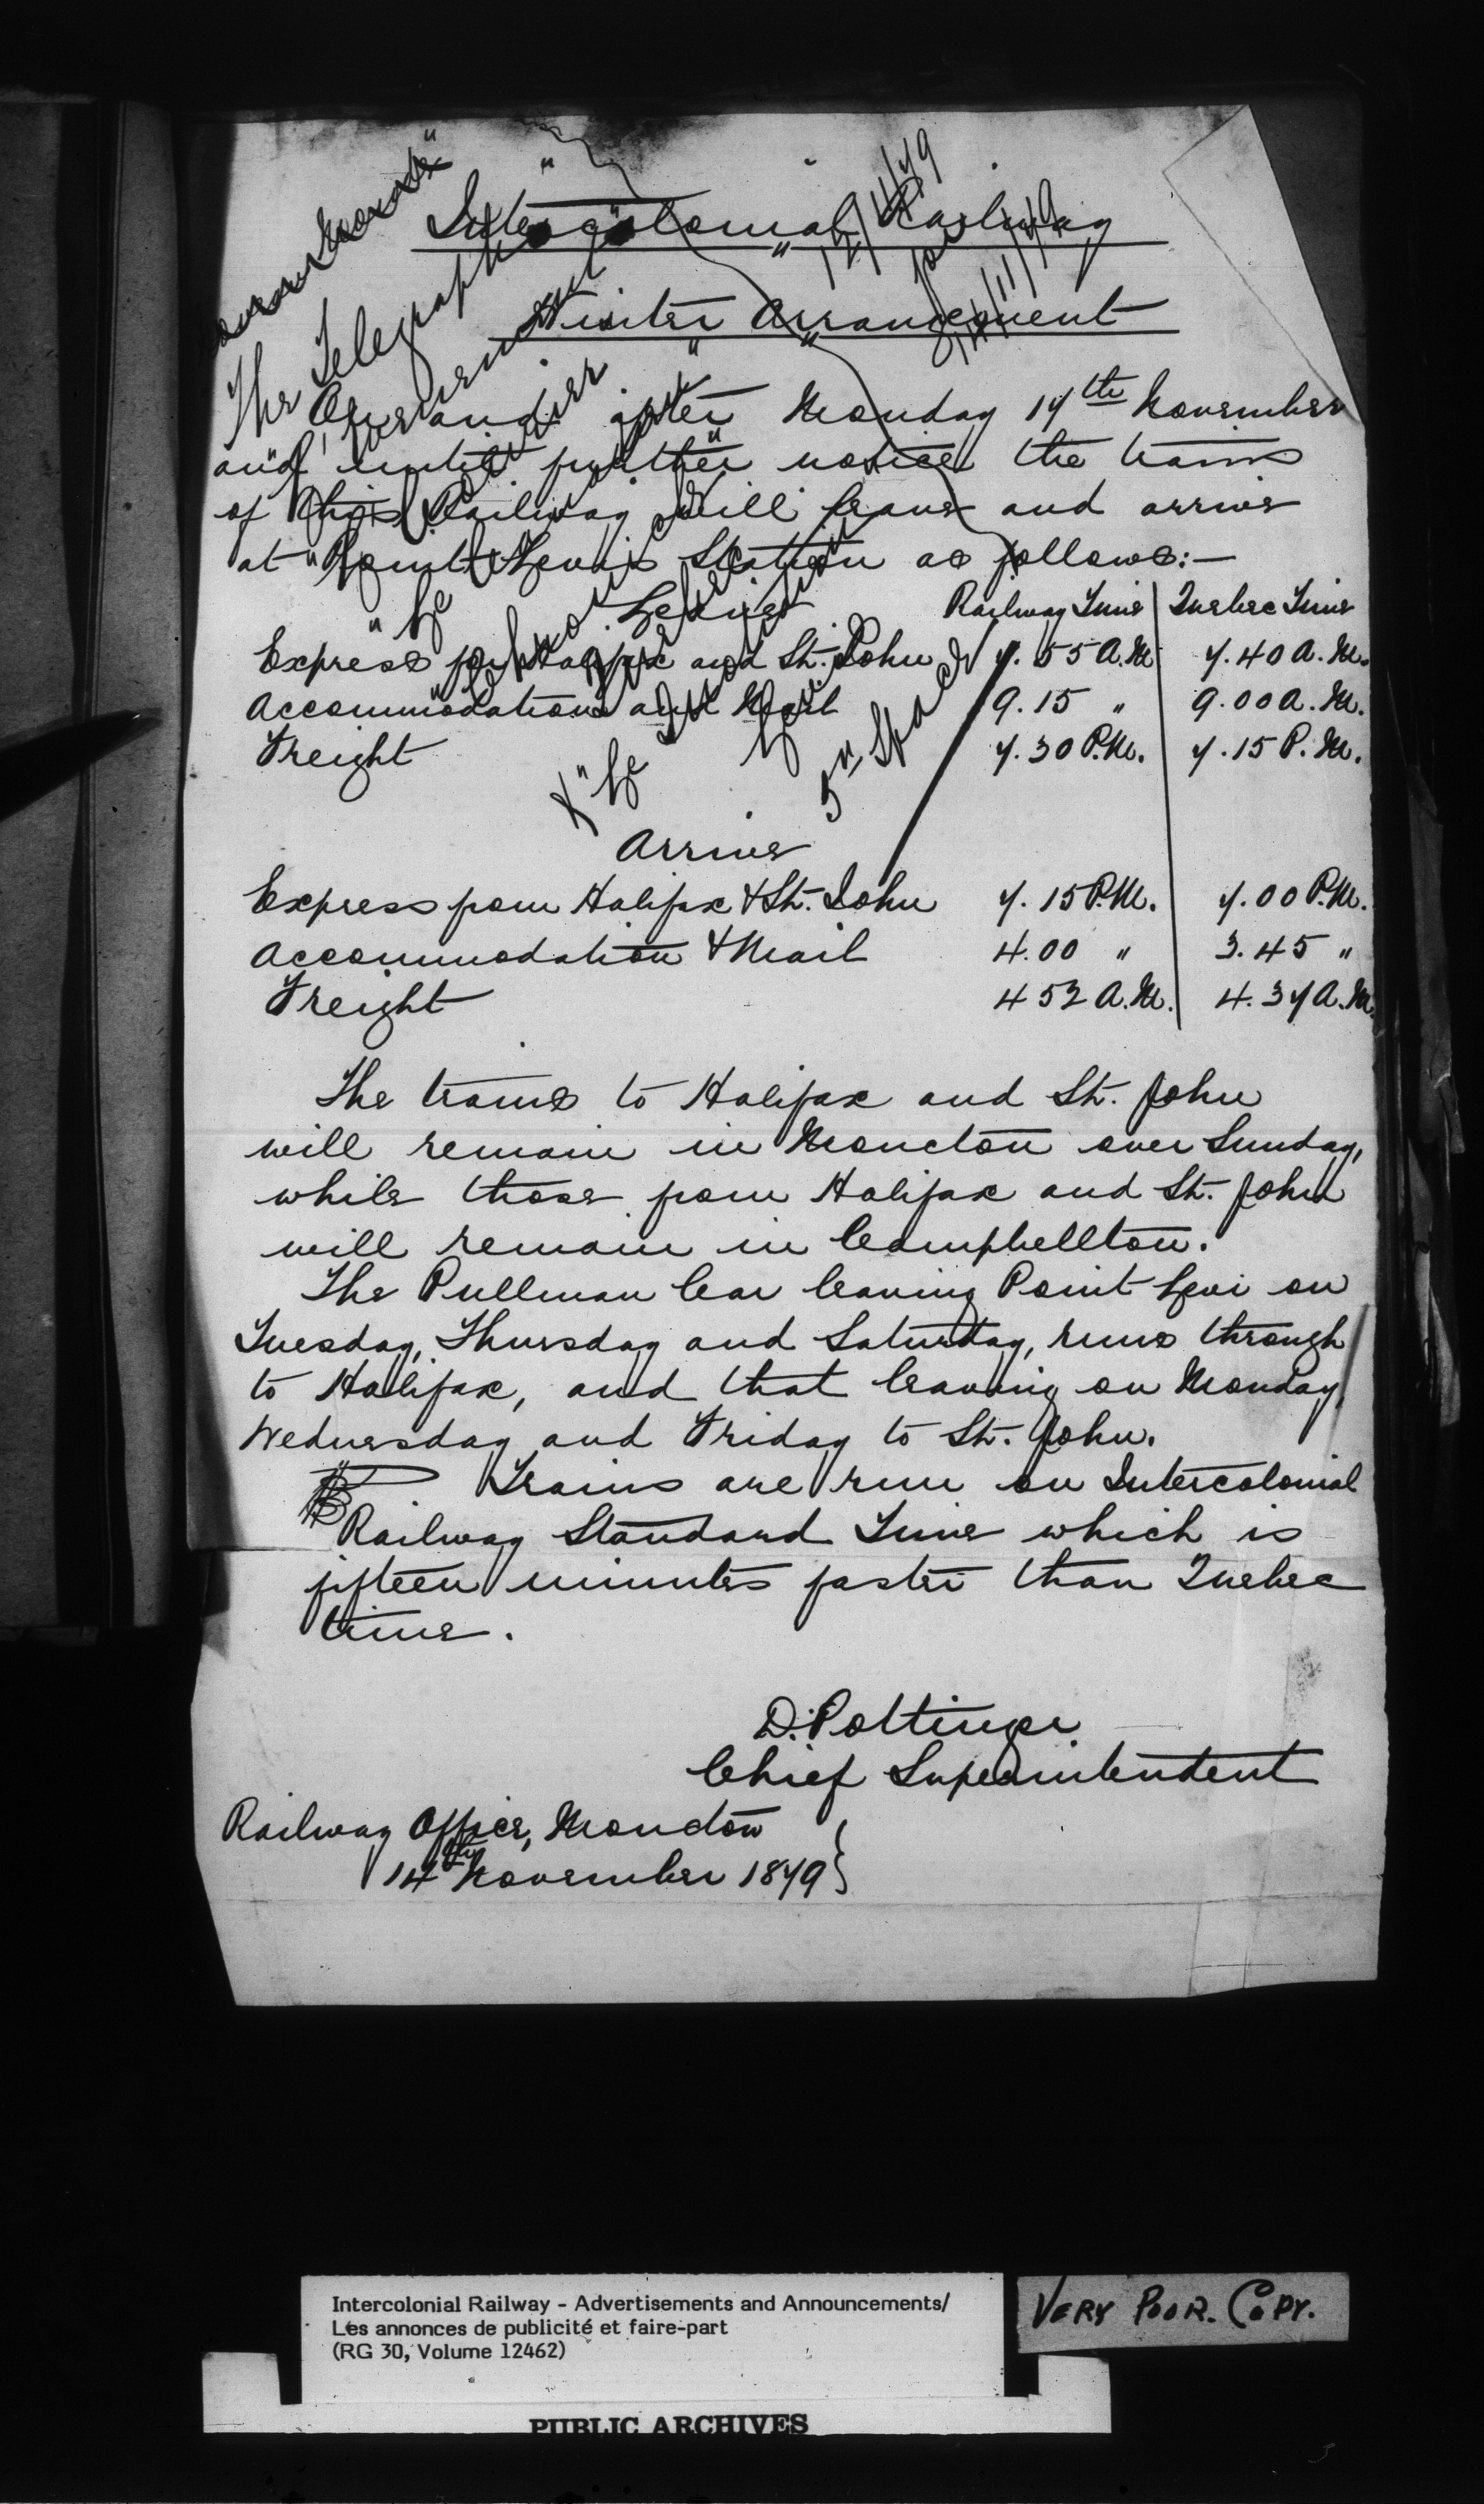 Intercolonial Railway
Winter Arrangement
On and after Monday 17th November
and until further notice the trains
of this Railway will leave and arrive
at Point Levis Station as follows:—
Leave
Railway Time | Quebec Time
Express for Halifax and St. John 7.55 A.M. 7.40 A.M.
Accommodation and Mail 9.15 " 9.00 A.M.
Freight 7.30 P.M. 7.15 P.M.
Arrive
Express from Halifax & St. John 7.15 P.M. 7.00 P.M.
Accommodation & Mail 4.00 " 3.45 "
Freight 4 52 A.M. 4.37 A.M.
The trains to Halifax and St. John
will remain in Moncton over Sunday,
while those from Halifax and St. John
will remain in Campbellton.
The Pullman Car leaving Point Levi on
Tuesday, Thursday and Saturday, runs through
to Halifax, and that leaving on Monday,
Wednesday and Friday to St. John.
Trains are run on Intercolonial
Railway Standard Time which is
fifteen minutes faster than Quebec
time.
D. Pottinger
Chief Superintendent
Railway Office, Moncton
14th November 1879
"The Telegraph"
12/11/79
14/11/79
5 in Space
Intercolonial Railway - Advertisements and Announcements/
Les annonces de publicité et faire-part
(RG 30, Volume 12462)
VERY POOR. COPY.
PUBLIC ARCHIVES